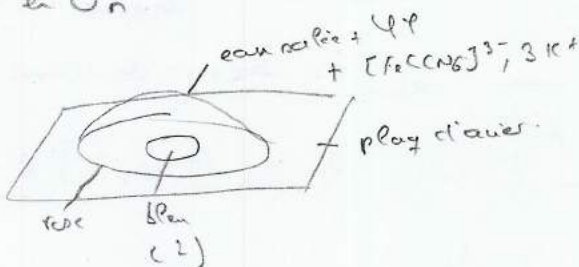 en On
eau salée + φφ
+ [Fe(CN)6]3-, 3 K+
plaq d'acier.
rose
bleu
(2)